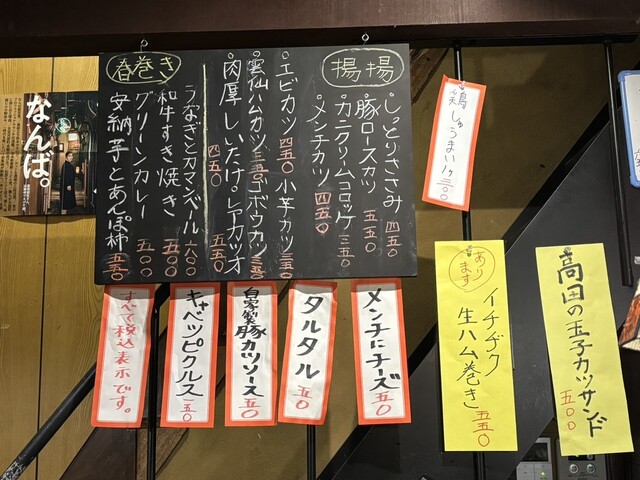 揚揚
しっとりささみ 四五〇
豚ロースカツ 五五〇
カニクリームコロッケ 三五〇
メンチカツ 四五〇
エビカツ 四五〇 小芋カツ 三五〇
雲仙ハムカツ 三五〇 ゴボウカツ 三五〇
肉厚しいたけ 四五〇 レアカツオ 五五〇
春巻き
うなぎとカマンベール 六八〇
和牛すき焼き 五〇〇
グリーンカレー 五〇〇
安納芋とあんぽ柿 五五〇
なんば。
鶏しゅうまい1ヶ 二〇〇
メンチにチーズ 五〇
タルタル 五〇
自家製豚カツソース 五〇
キャベツピクルス 五〇
すべて税込表示です。
あります
イチヂク生ハム巻き 五五〇
高田の玉子カツサンド 五〇〇